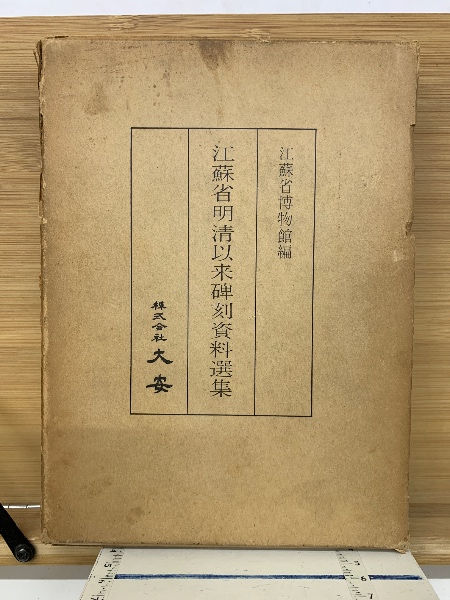 江蘇省博物館編
江蘇省明清以来碑刻資料選集
株式会社大安